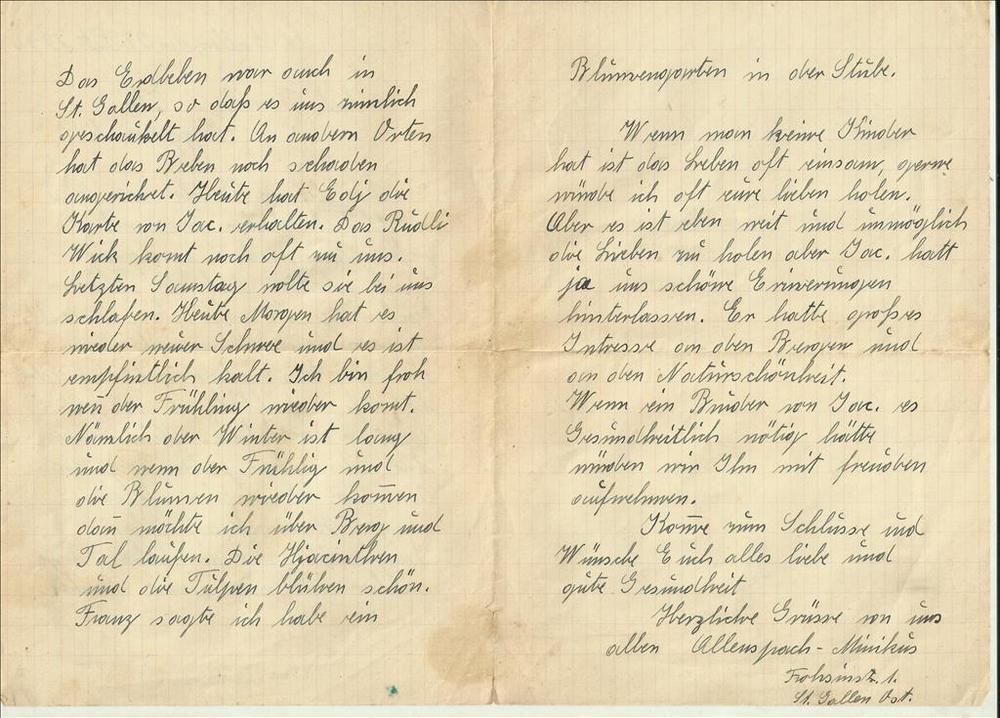 Das Erdbeben war auch in
St. Gallen, so daß es uns zimlich
geschaukelt hat. An andern Orten
hat das Beben noch schaden
angerichtet. Heute hat Edj die
Karte von Jac. erhalten. Das Rudli
Wick komt noch oft zu uns.
Letzten Samstag wolte sie bei uns
schlafen. Heute Morgen hat es
wieder neuer Schnee und es ist
empfintlich kalt. Ich bin froh
wen̄ der Frühling wieder komt.
Nämlich der Winter ist lang
und wenn der Frühlig und
die Blumen wieder kom̄en
dan̄ möchte ich über Berg und
Tal laufen. Die Hjacinthen
und die Tulpen blühen schön.
Franz sagte ich habe ein
Blumengarten in der Stube.
Wenn man keine Kinder
hat ist das Leben oft einsam, gerne
würde ich oft eure lieben holen.
Aber es ist eben weit und unmöglich
die Lieben zu holen aber Jac. hatt
ja uns schöne Erinerungen
hinterlassen. Er hatte großes
Intresse an den Bergen und
an den Naturschönheit.
Wenn ein Bruder von Jac. es
Gesundheitlich nötig hätte
würden wir Ihm mit freuden
aufnehmen.
Kom̄e zum Schlusse und
Wünsche Euch alles liebe und
gute Gesundheit
Herzliche Grüsse von uns
allen Allenspach-Minikus
Frohsinstr. 1.
St. Gallen Ost.